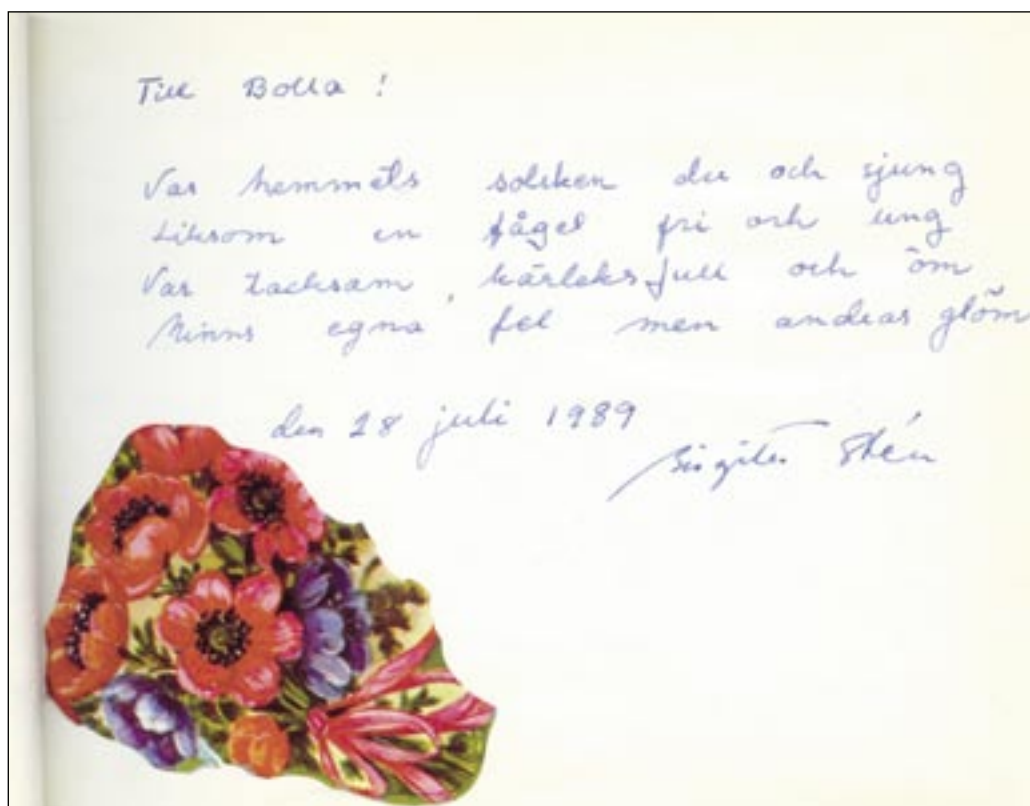 Till Bolla !
Var hemmets solsken du och sjung
Liksom en fågel fri och ung
Var tacksam, kärleksfull och öm
Minns egna fel men andras glöm
den 28 juli 1989
Stén